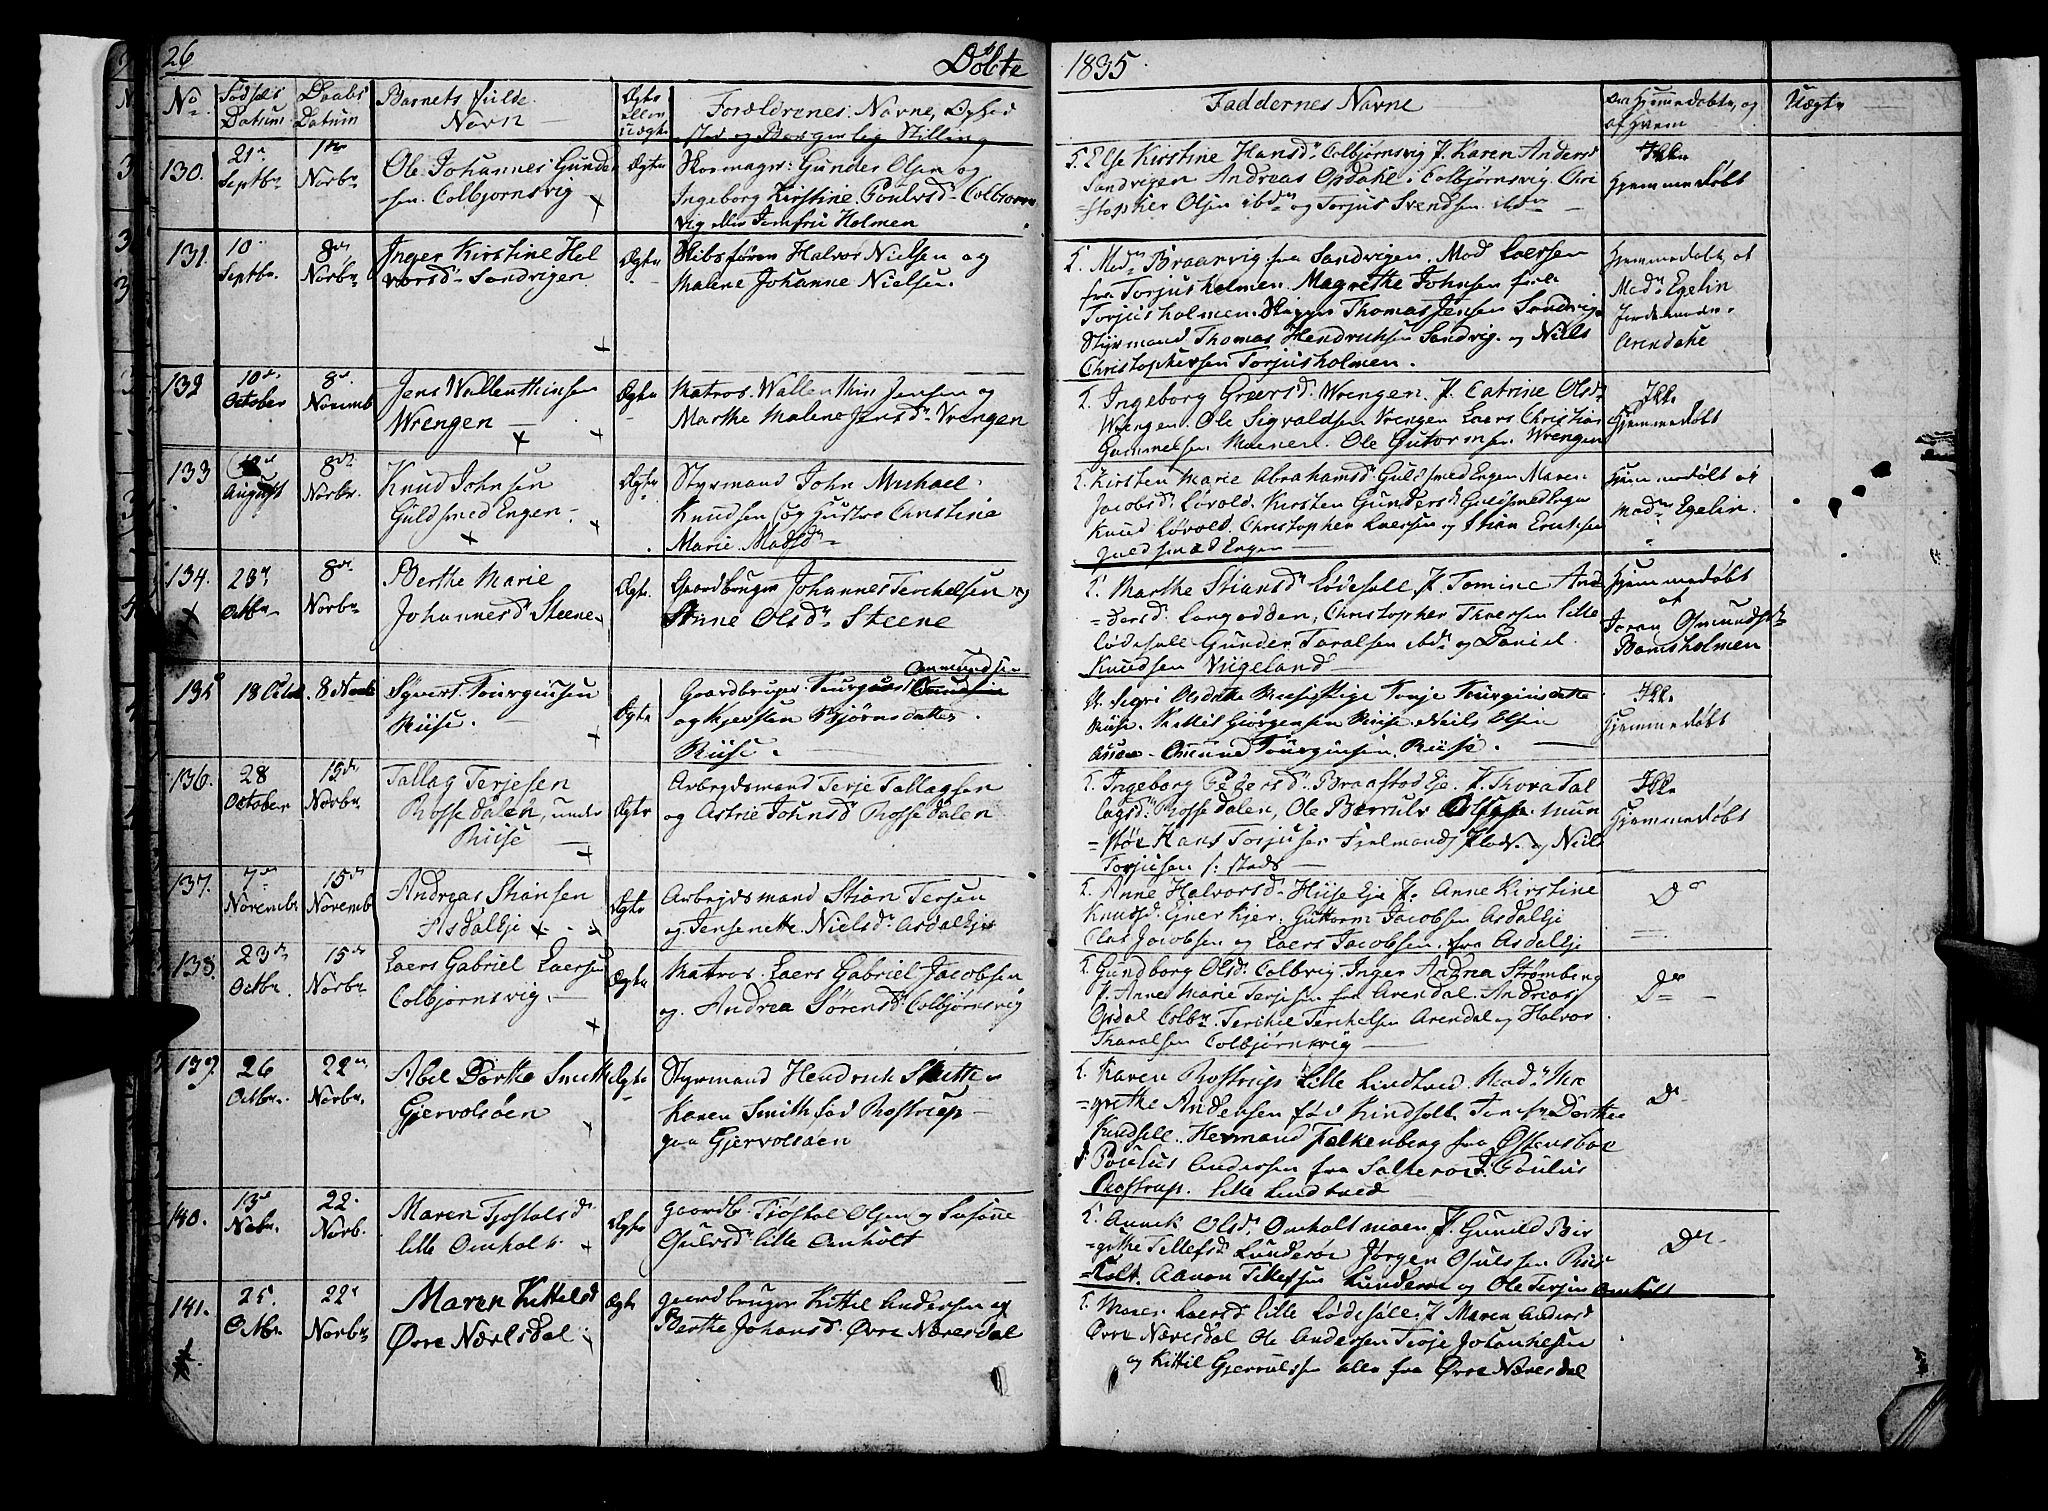 26 Døbte 1835
No Fødsels Datum Daabs Datum Barnets fulde Navn Ægte eller uægte Forældrenes Navne, Opholdsted og Borgerlig Stilling Faddernes Navne Om Hjemmedøbte, og af hvem Uægte
130. 21 Septbr 1 Norbr Ole Johannes Gunder
sen. Colbjørnsvig Ægte
Gunder Olsen og
Ingeborg Kirstine Poulsd. Colbjørns
vig eller Jomfru Holmen
Else Kirstine Hansd. Colbjørnsvig J. Karen Andersd
Sandvigen Andreas Opdahl. Colbjørnsvig. Chri
=stopher Olsen ibdm og Torjus Svendsen ibdm
Ikke
Hjemmedøbt
131. 10 Septbr. 8de Norbr Inger Kirstine Hal
vorsd. Sandvigen Ægte
Skibsføren Halvor Nielsen og
Malene Johanne Nielsen.
Mad. Braarvig fra Sandvigen. Mad Laersen
fra Torjusholmen. Magrethe Johnsen fra
Torjusholmen. Skipper Thomas Jensen Sandvig
Styrmand Thomas Hendrichsen Sandvig. og Niels
Christophersen Torjusholmen.
Hjemmedøbt af
Mad. Egelin
Jordemoder
Arendahl
132 10de October 8de Novemb Jens Wallenthinsen
Wrengen Ægte
Matros. Wallenthin Jensen og
Marthe Malene Jensd. Vrengen
Ingeborg Greersd. Wrengen. J. Catrine Olsd.
Wrengen. Ole Sigvaldsen Vrengen Laers Christian
Gammelsen Marnen. Ole Gutormsen. Wrengen
Ikke
Hjemmedøbt
133 August 8de Norbr. Knud Johnsen
Guldsmed Engen Ægte
Styrmand John Michael
Knudsen og Hustro Christine
Marie Madsd.
Kirsten Marie Abrahamsd. Guldsmed Engen Maren
Jacobsd. Løvold. Kirsten Gundersd. Guldsmed Engen
Knud Løvold. Christopher Laersen og Stian Ericksen
Guldsmed Engen
Hjemmedøbt af
Mad. Egelin.
134. 23 Octbr. 8de Norbr Berthe Marie
Johannesd. Steene Ægte.
Gaardbruger Johannes Terchelsen og
Anne Olsd. Steene
Marthe Stiansd. Lødesøll J. Tomine And
=dersd. Langodden, Christopher Thoersen lille
Lødesøll Gunder Taralsen ibd. og Daniel
Knudsen Viigeland
Hjemmedøbt
af
Joran Osmundsd.
Bomsholmen
135 18 Octbr. 8 Novb Syvert Tourginsen
Riise. Ægte
Gaardbruger. Tourgius Ommundsen
og Kjersten Bjørnsdatter.
Riise.
Sigri Olsdatter Riise Pige Tonje Tourginsdatter
Riise. Kittil Giørgensen Riise Neils Olsen
Omund Tourginsen. Riise.
Ikke
Hjemmedøbt
136. 28 October 15de Norbr Tallag Terjesen
Rossedalen, under
Riise Ægte
Arbeydsmand Terje Tallagsen
og Astrie Johnsd. Rossedalen
Ingeborg Pedersd. Braastad Eje. J. Thora Tal
lagsd. Rossedalen, Ole Berrulv
Hans Torjusen og Niels
Torjusen
Ikke
Hjemmedøbt
137. 7de Novembr 15de Novemb Andreas Stiansen
Asdal Eje Ægte
Arbejdsmand Stian Tersen
og Jensenette Nielsd. Asdal Eje
Anne Halvorsd. Hiise Eje J. Anne Kirstine
Knudsd. Guttorm Jacobsen Asdal Eje
Olas Jacobsen og Laers Jacobsen. fra Asdal Eje
Do
138. 23de Octbr. 15de Norbr. Laers Gabriel Laersen
Colbjørnsvig. Ægte
Matros. Laers Gabriel Jacobsen
og. Andrea Sørensd. Colbjørnsvig
Gundborg Olsd. Colbvig. Inger Andrea Strømberg
J. Anne Marie Terjesen fra Arendal. Andreas
Opdal Colbr. Terchel Terchelsen Arendal og Halvor
Tharalsen Colbjørnsvig
Do
139. 26 Octbr. 22 Norbr. Abel Dorthe Smith
Gjervolsøen Ægte
Styrmand Hendrich Smith
Karen Smith fød Rostrup
paa Gjervolsøen
Karen Rostrup. Lille Lindtved. Mad. Ma
=grethe Andersen fød Kindsøll. Dorthea
Kindsøll. Hermand Falkenberg fra Østensboe
Poulus Andersen fra Salterø. J. Poulus
Rostrup. lille Lindtved
Do
140. 13 22 Norb. Maren Tjostolsd.
lille Omholt. Ægte
Gaardb. Tjøstol Olsen og Susanne
lille Omholt
Olsd. Omholt J. Gunild Bir
=githe Tellefsd. Lunderøe Jørgen
Aanon Tellefsen Lunderøe og Ole Terjesen Omholt
Do
141. 25. Octbr. 22 Norbr Maren Kittelsd
Øvre Nærlsdal Ægte
Gaardbruger Kittil Andersen og
Berthe Johansd. Øvre Næresdal
Maren Laersd. lille Lødesøll. J. Maren Andersd
Øvre Næresdal Ole Andersen Johannesen
og Kittil Gjerrulssen alle fra Øvre Næresdal